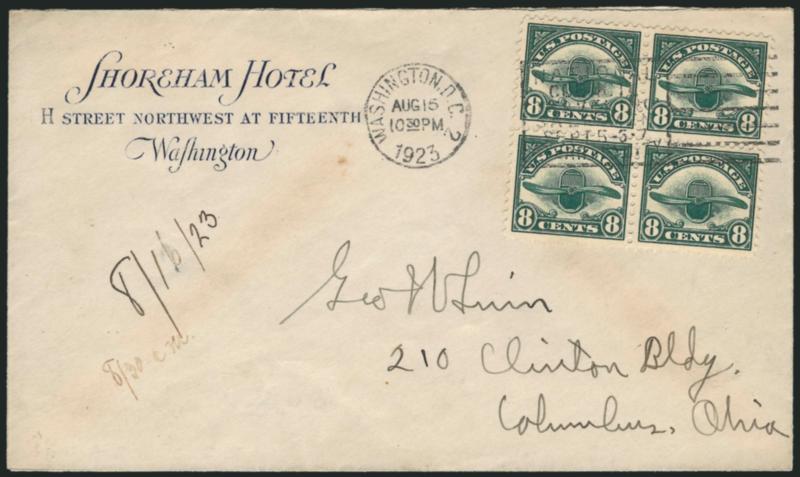 SHOREHAM HOTEL
H STREET NORTHWEST AT FIFTEENTH
Washington
WASHINGTON, D.C. 2
AUG 15
10 30 PM
1923
U.S. POSTAGE
8 CENTS 8
U.S. POSTAGE
8 CENTS 8
U.S. POSTAGE
8 CENTS 8
U.S. POSTAGE
8 CENTS 8
8/16/23
8/30
Geo W Linn
210 Clinton Bldg.
Columbus, Ohio